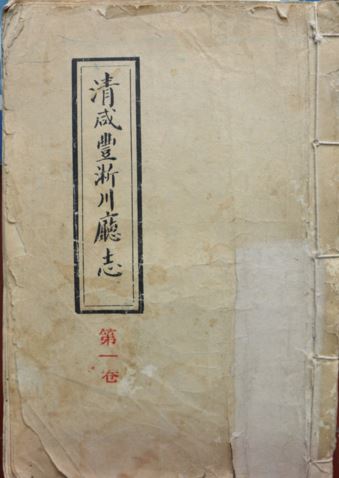 清咸豐淅川廳志
第一卷